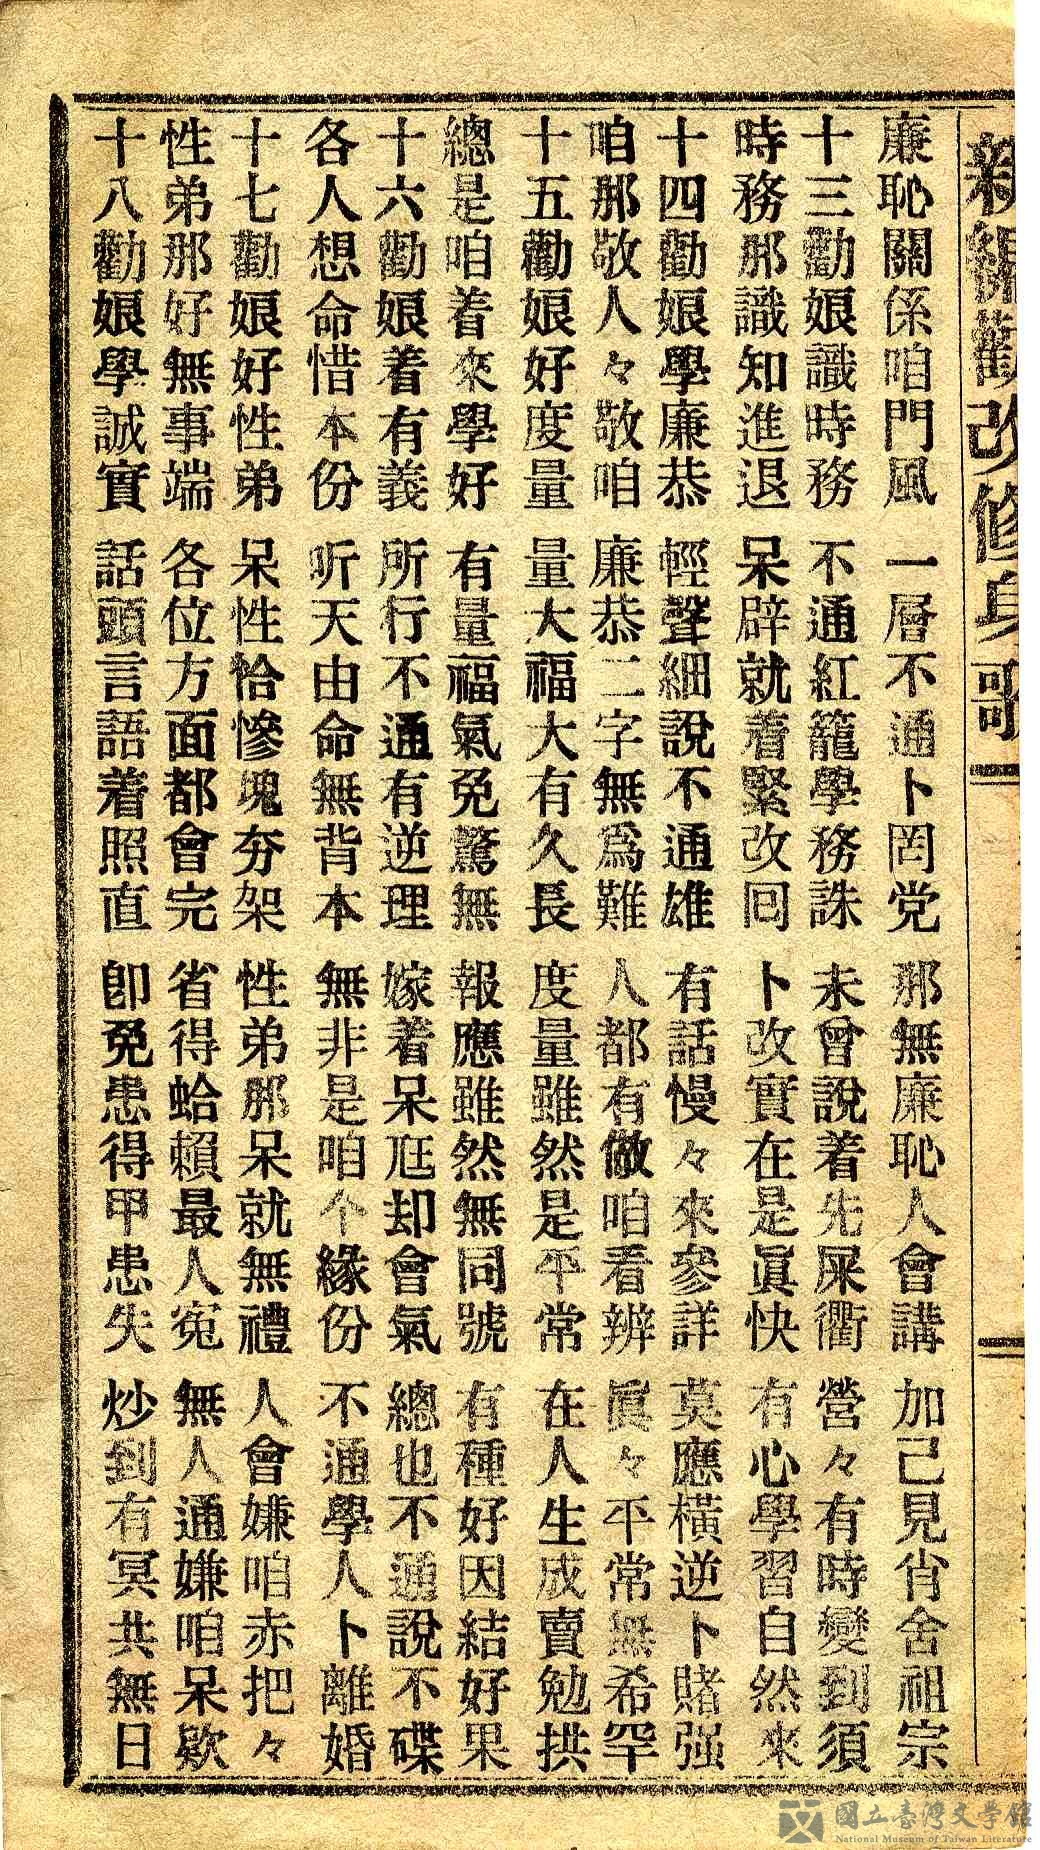 新編勸改修身歌
廉恥關係咱門風　一層不通卜罔党　那無廉恥人會講　加己見肖舍祖宗
十三勸娘識時務　不通紅籠學務誅　未曾說着先屎衢　營々有時變到須
時務那識知進退　呆辟就着緊改回　卜改實在是眞快　有心學習自然來
十四勸娘學廉恭　輕聲細說不通雄　有話慢々來參詳　莫應橫逆卜賭强
咱那敬人々敬咱　廉恭二字無爲難　人都有做咱看辨　眞々平常無希罕
十五勸娘好度量　量大福大有久長　度量雖然是平常　在人生成賣勉拱
總是咱着來學好　有量福氣免驚無　報應雖然無同號　有種好因結好果
十六勸娘着有義　所行不通有逆理　嫁着呆尫却會氣　總也不通說不碟
各人想命惜本份　听天由命無背本　無非是咱个緣份　不通學人卜離婚
十七勸娘好性弟　呆性恰慘塊夯架　性弟那呆就無禮　人會嫌咱赤把々
性弟那好無事端　各位方面都會完　省得蛤賴最人寃　無人通嫌咱呆欵
十八勸娘學誠實　話頭言語着照直　卽免患得甲患失　炒到有冥共無日
國立臺灣文學館
National Museum of Taiwan Literature